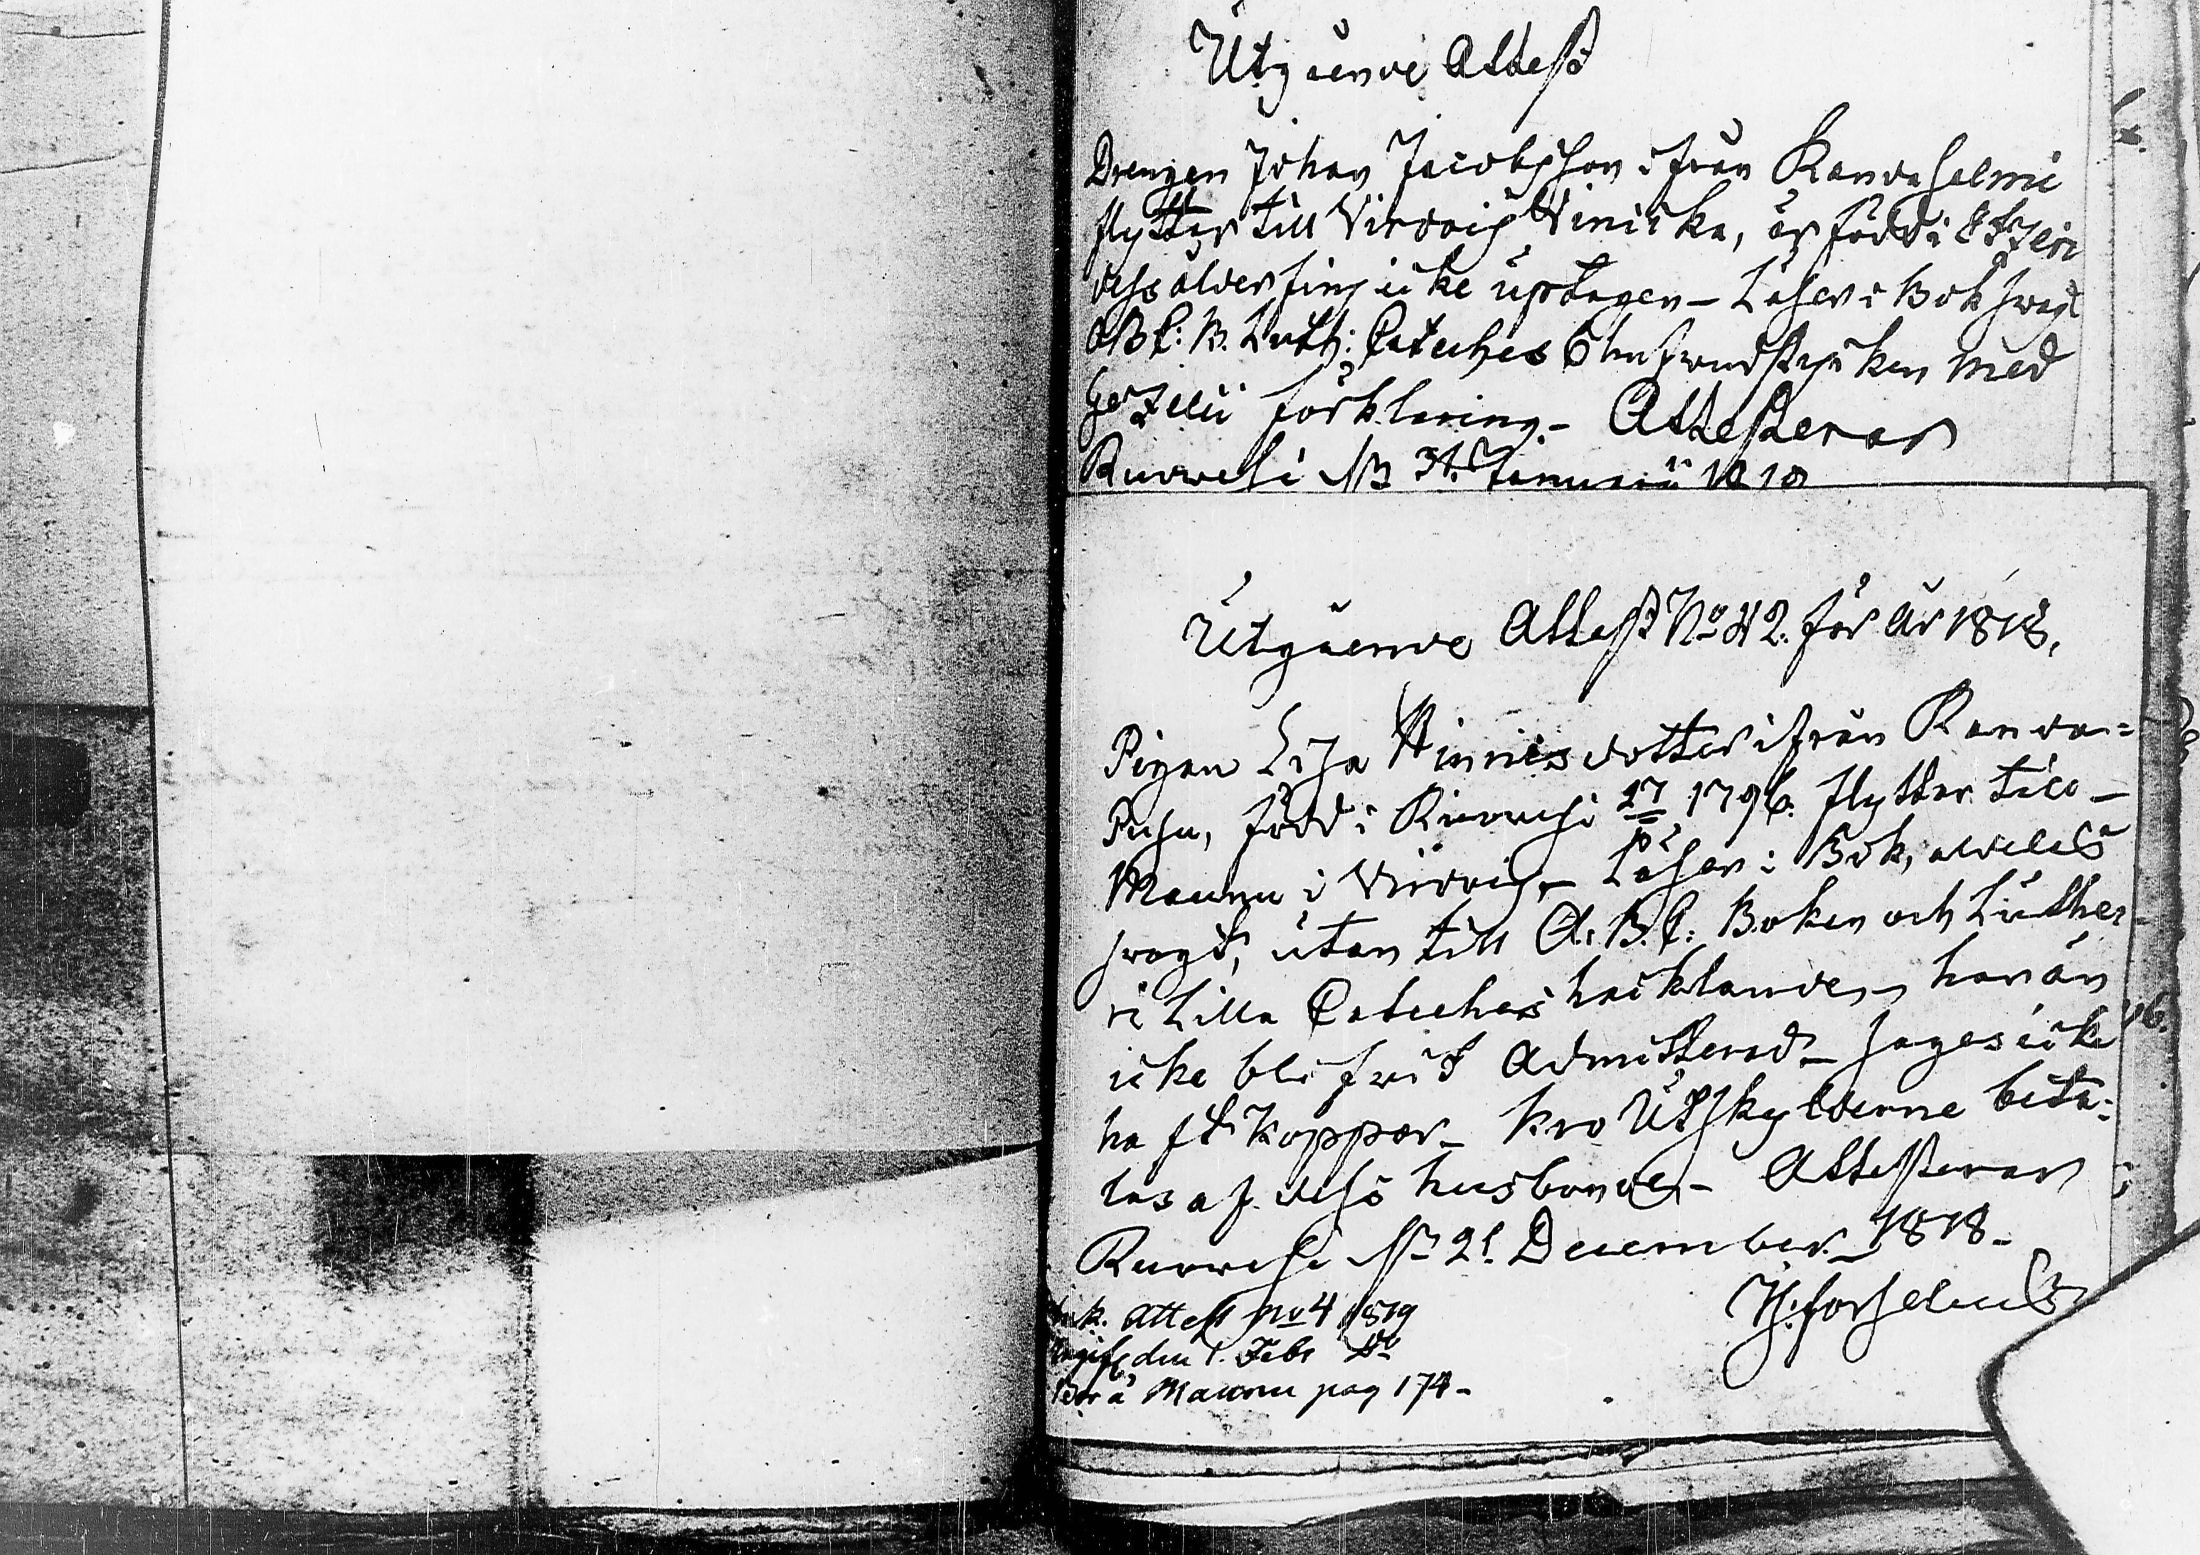 Utgående Attest
Drengen Johan Jacobsson ifrån Randasalmi
flyttar till Virdois Vinicka, är född i Etzeri
dess ålder fins icke uptagen – Läser i Bok swagt
ABC: B. Luth: Cateches hufwudstycken med
Gezelii förklaring. – Attesteras
Ruowesi d. 31. Januarii 1818
Utgående Attest No 42. för år 1818.
Pigan Lisa Hinricsdotter ifrån Randa=
Pihu, född i Ruowesi 1796. flyttar till –
Maunu i Virdois – Läser i Bok, aldeles
swagt, utan till A.B.C: Boken och Luthe-
ri Lilla Cateches hacklande, – har än
icke blifwit Admitterad – sages icke
haft Koppor – Kro Utskylderne beta=
las af dess husbonde, – Attesteras
Ruowesi d. 21 December 1818 –
H: Forselius
Ink. Attest No 4 1819
den 1. Febr do
å Maunu pag 174 –